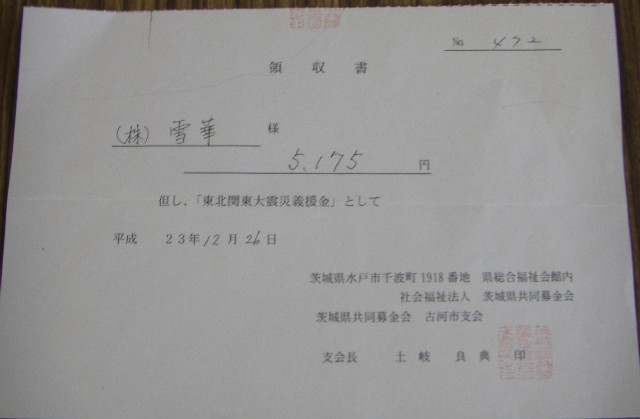 No. 472
領収書
(株) 雪華 様
5,175 円
但し、「東北関東大震災義援金」として
平成 23年12月26日
茨城県水戸市千波町1918番地 県総合福祉会館内
社会福祉法人 茨城県共同募金会
茨城県共同募金会 古河市支会
支会長 土岐良典 印